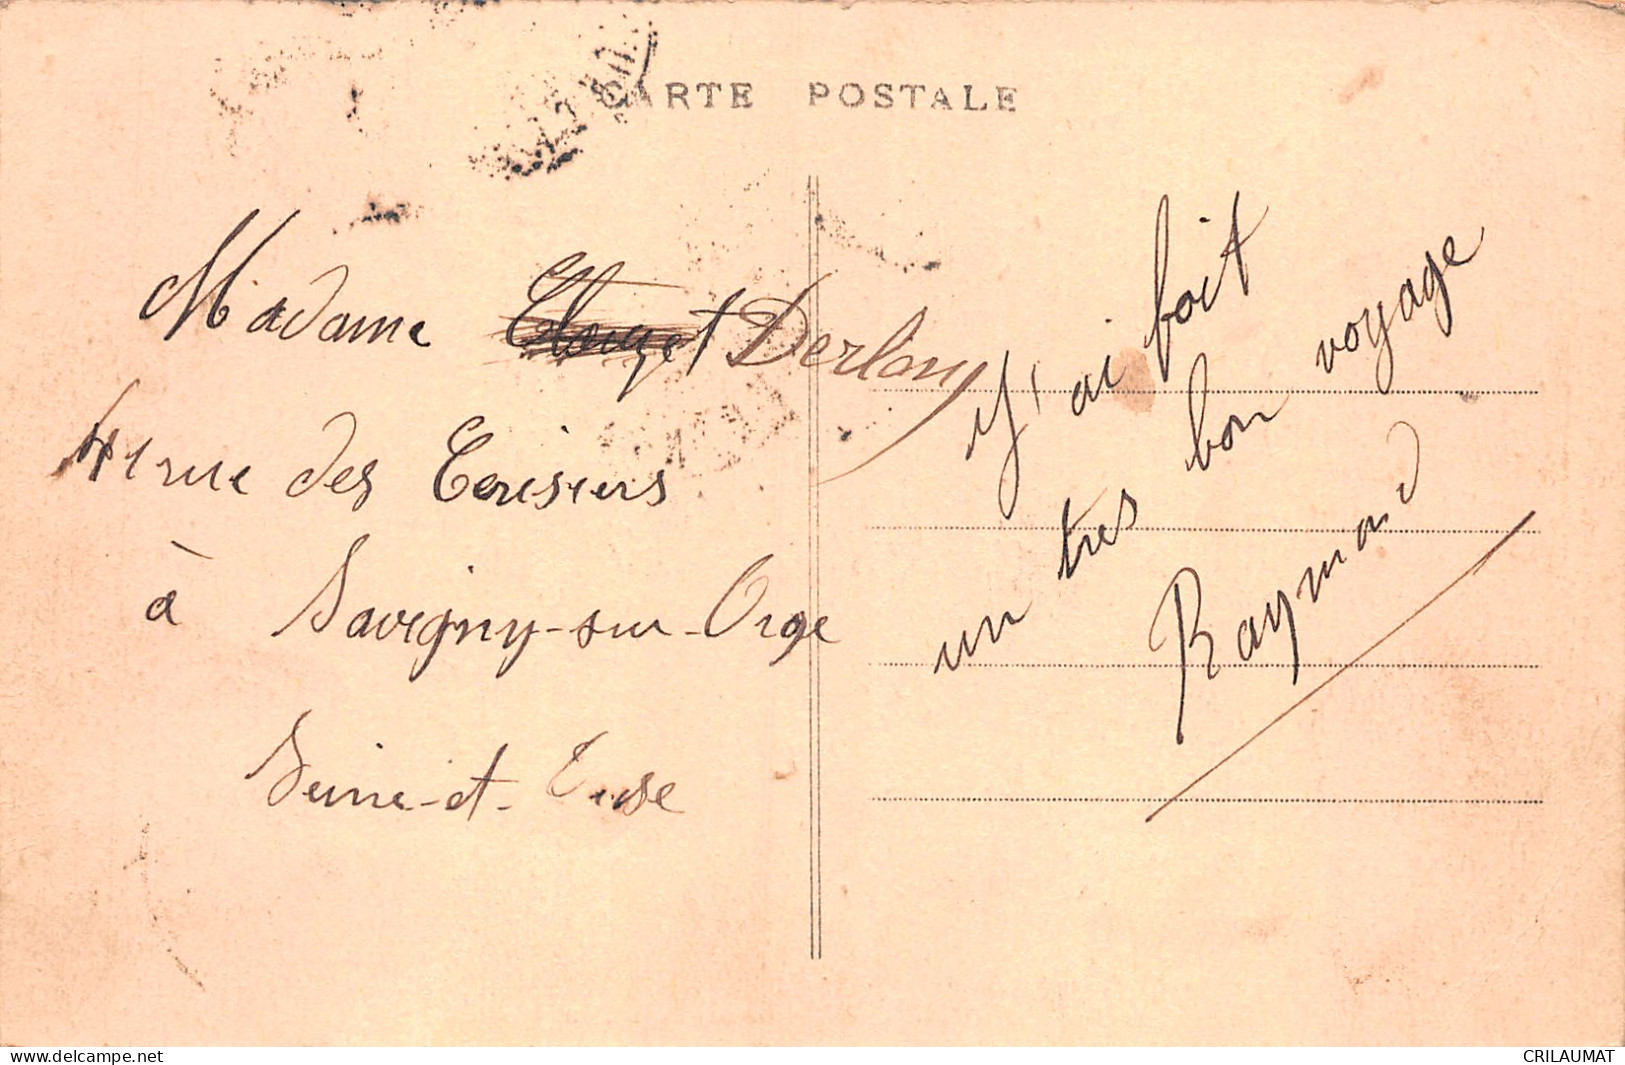 CARTE POSTALE
Madame Derlon
41 rue des Cerisiers
à Savigny-sur-Orge
Seine-et-Oise
J'ai fait
un tres bon voyage
Raymond
www.delcampe.net
CRILAUMAT